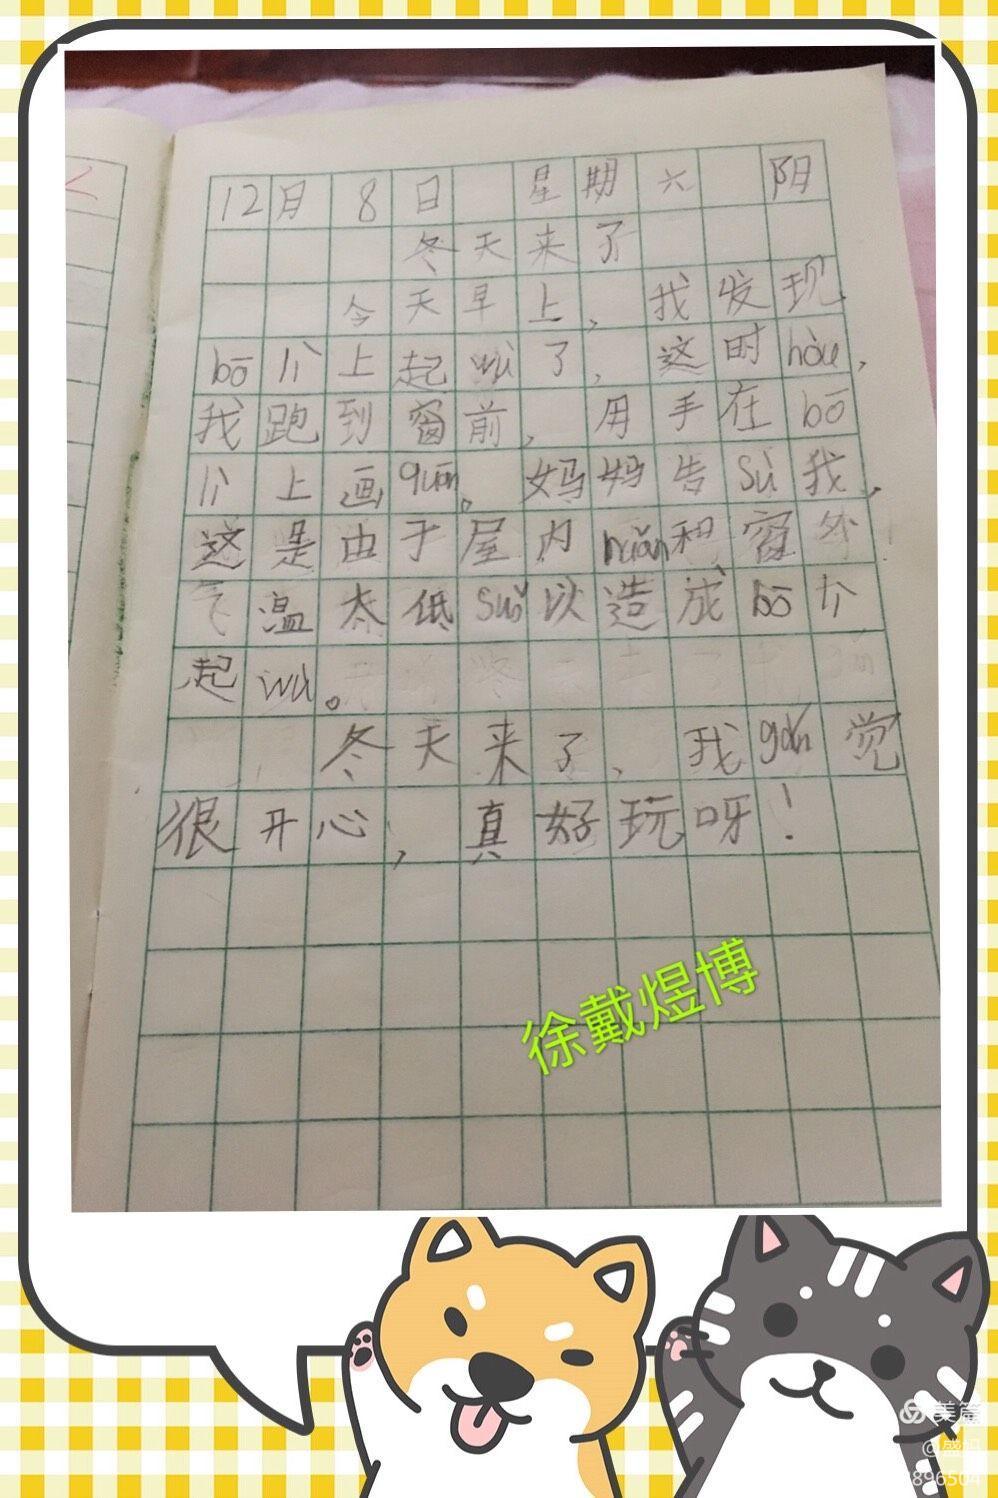 12月 8日 星期六 阴
冬天来了
今天早上，我发现
bō lí上起wù了，这时hòu，
我跑到窗前，用手在bō
lí上画quān。妈妈告sù我，
这是由于屋内nuǎn和窗外
气温太低suǒ以造成bō lí
起wù。
冬天来了，我gǎn觉
很开心，真好玩呀！
徐戴煜博
美篇
896504